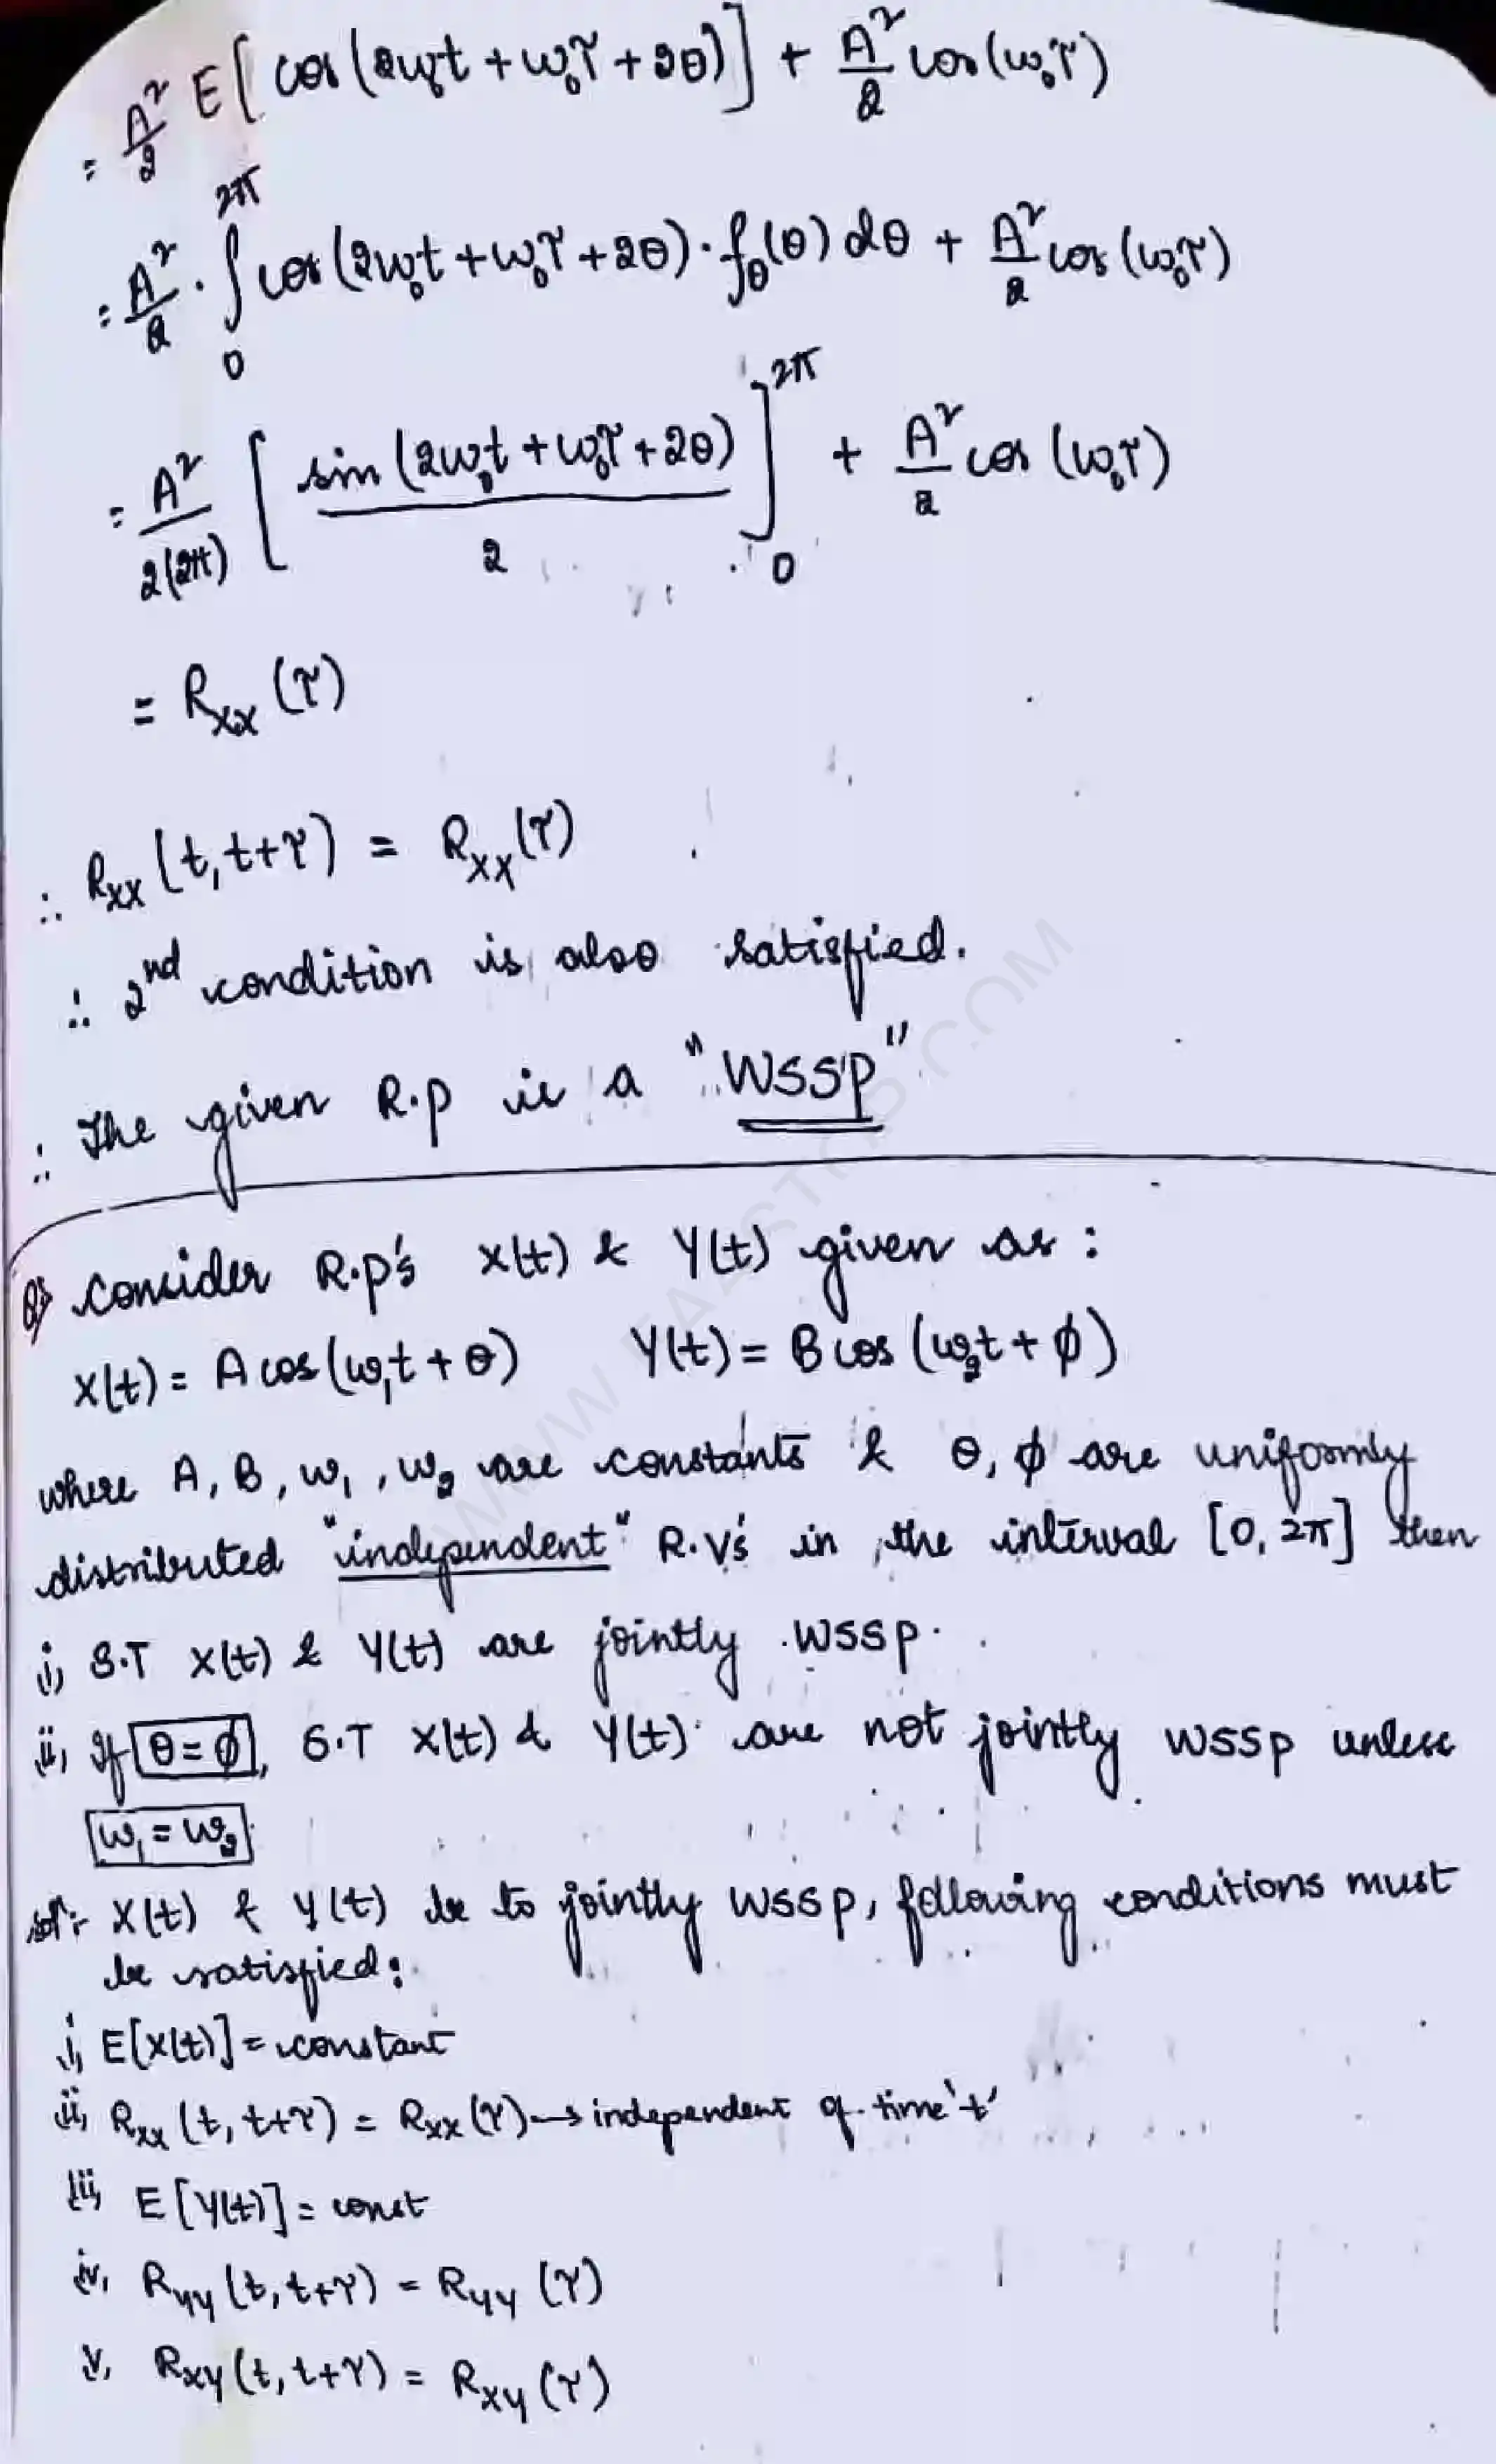 = A²/2 E[cos(2ω₀t + ω₀τ + 2θ)] + A²/2 cos(ω₀τ)
= A²/2 · ∫₀^2π cos(2ω₀t + ω₀τ + 2θ) · f_θ(θ) dθ + A²/2 cos(ω₀τ)
= A²/2(2π) [sin(2ω₀t + ω₀τ + 2θ)/2]₀^2π + A²/2 cos(ω₀τ)
= R_XX(τ)
∴ R_XX(t, t+τ) = R_XX(τ)
∴ 2nd condition is also satisfied.
∴ The given R.P is a "WSSP"
Q) Consider R.P's X(t) & Y(t) given as:
X(t) = A cos(ω₁t + θ) Y(t) = B cos(ω₂t + φ)
where A, B, ω₁, ω₂ are constants & θ, φ are uniformly
distributed "independent" R.V's in the interval [0, 2π] then
i) S.T X(t) & Y(t) are jointly WSSP.
ii) If θ = φ, S.T X(t) & Y(t) are not jointly WSSP unless
ω₁ = ω₂
Sol:- X(t) & Y(t) be to jointly WSSP, following conditions must
be satisfied:
i) E[X(t)] = constant
ii) R_XX(t, t+τ) = R_XX(τ) → independent of time 't'
iii) E[Y(t)] = const
iv) R_YY(t, t+τ) = R_YY(τ)
v) R_XY(t, t+τ) = R_XY(τ)